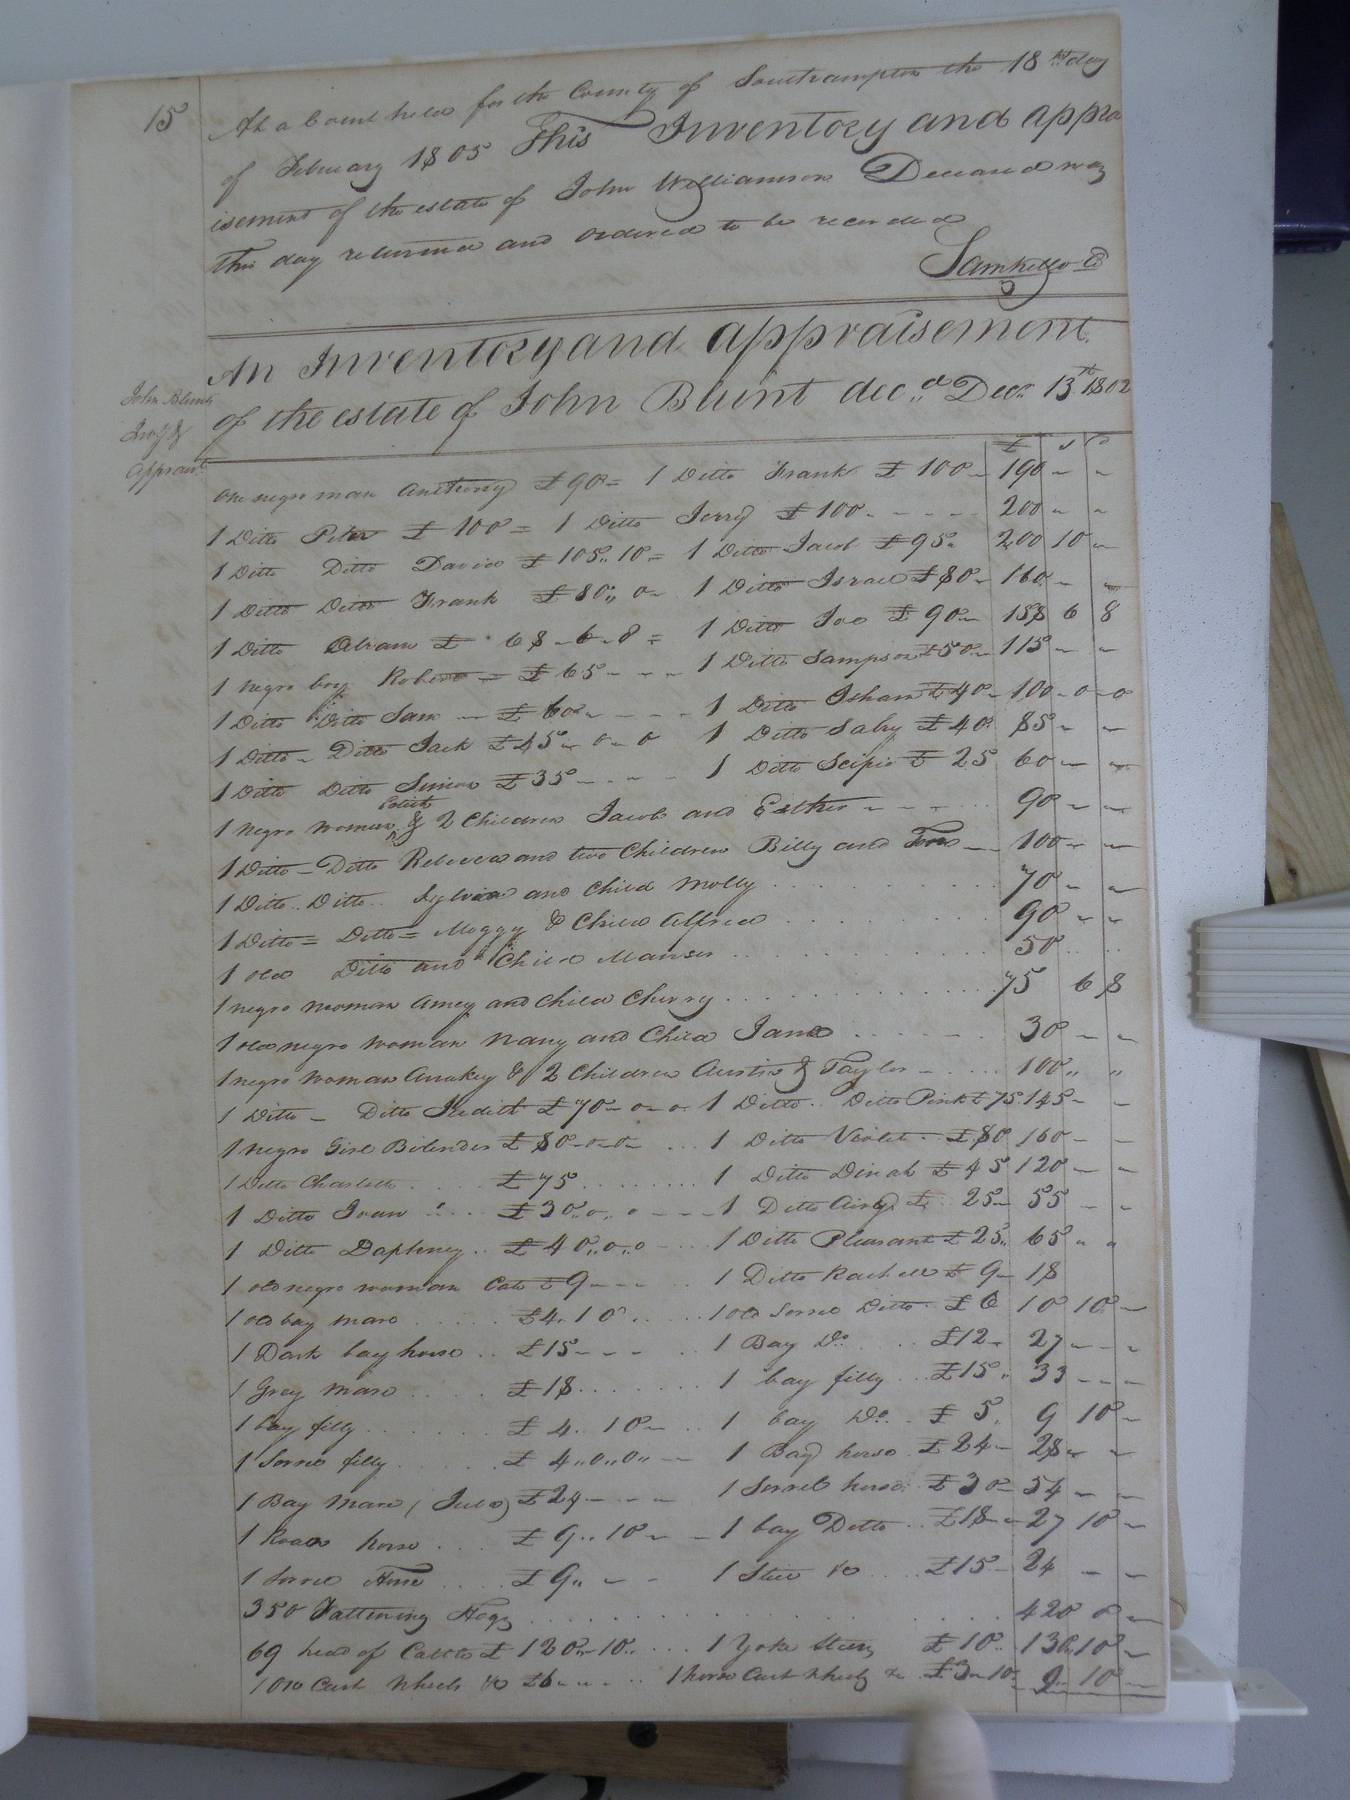 15
At a Court held for the County of Southampton the 18th day
of February 1805 This Inventory and appra
isement of the estate of John Williamson Deceased was
this day returned and ordered to be recorded
Sam Kello Cl
An Inventory and appraisement
of the estate of John Blunt dec.d Decr. 13th 1802
John Blunt
Invy &
Appraist
£ s d
one negro man Anthony £90= 1 Ditto Frank £100 190 " "
1 Ditto Peter £100= 1 Ditto Jerry £100 - - - - 200 " "
1 Ditto Ditto David £105,,10= 1 Ditto Jacob £95 200 10 "
1 Ditto Ditto Frank £80,, 0 1 Ditto Israel £80 160 " "
1 Ditto Abram £68-6-8 = 1 Ditto Joe £90 158 6 8
1 negro boy Robert = £65 - - - 1 Ditto Sampson £50 115 " "
1 Ditto Ditto Sam - £60 - - - - 1 Ditto Isham £40 100-0-0
1 Ditto - Ditto Jack £45 " 0 " 0 1 Ditto Salry £40 85 " "
1 Ditto Ditto Simon £35 - - - - 1 Ditto Scipio £25 60 " "
1 negro woman Edith & 2 Children Jacob and Esther - - - 90 " "
1 Ditto - Ditto Rebecca and two Children Billy and Tom 100 " "
1 Ditto .. Ditto .. Sylvia and Child Molly . . . 70 " "
1 Ditto = Ditto = Moggy & Child Alfred . . . 90 " "
1 old Ditto and Child Manser . . . 50 .. ..
1 negro woman Amey and Child Cherry . . . 75 6 8
1 old negro woman Nany and Child Jane . . . 30 " "
1 negro woman Anakey & 2 Children Austin & Taylor - . . . 100,, "
1 Ditto - Ditto Judith £70-0-0 1 Ditto .. Ditto Pink £75 145 " "
1 negro Girl Bilender £80-0-0 ... 1 Ditto Violet - £80 160 - -
1 Ditto Charlotte . . . £75 . . . 1 Ditto Dinah £45 120 - "
1 Ditto Joan . . . £30,,0,,0 - - - 1 Ditto Airy £ 25 55 - "
1 Ditto Daphney .. £40,,0,,0 ... 1 Ditto Pleasant £25,, 65 " "
1 old negro woman Cate £9 - - - .. 1 Ditto Rachell £9 18
1 old bay mare . . . £4,,10 . . . 1 old Sorrel Ditto . £6 10 10 "
1 Dark bay horse .. £15 - - - .. 1 Bay Do . . £12 27 - - "
1 Grey mare . . . £18 . . . 1 bay filly ... £15 ,, 33 - - "
1 bay filly . . . £4 .. 10 - .. 1 bay Do . . £5, 9 10 "
1 Sorrel filly . . . £4,,0,,0,, - 1 Bay horse . £24 28 " "
1 Bay Mare (Julia) £24 - - - 1 Sorrel horse £30 54 " "
1 Roan horse . . . £9,,10 - - 1 bay Ditto .. £18 27 10 "
1 Sorrel Horse . . . £9,, - - 1 Steer &c . . . £15 24 - "
350 Fattening Hogs . . . 420 0 "
69 head of Cattle £120,,10,, . . . 1 Yoke Steers £10 .. 130,,10 "
1 Ox Cart Wheels &c £6 - - . . . 1 horse Cart Wheels &c . £3-10 9 10 "